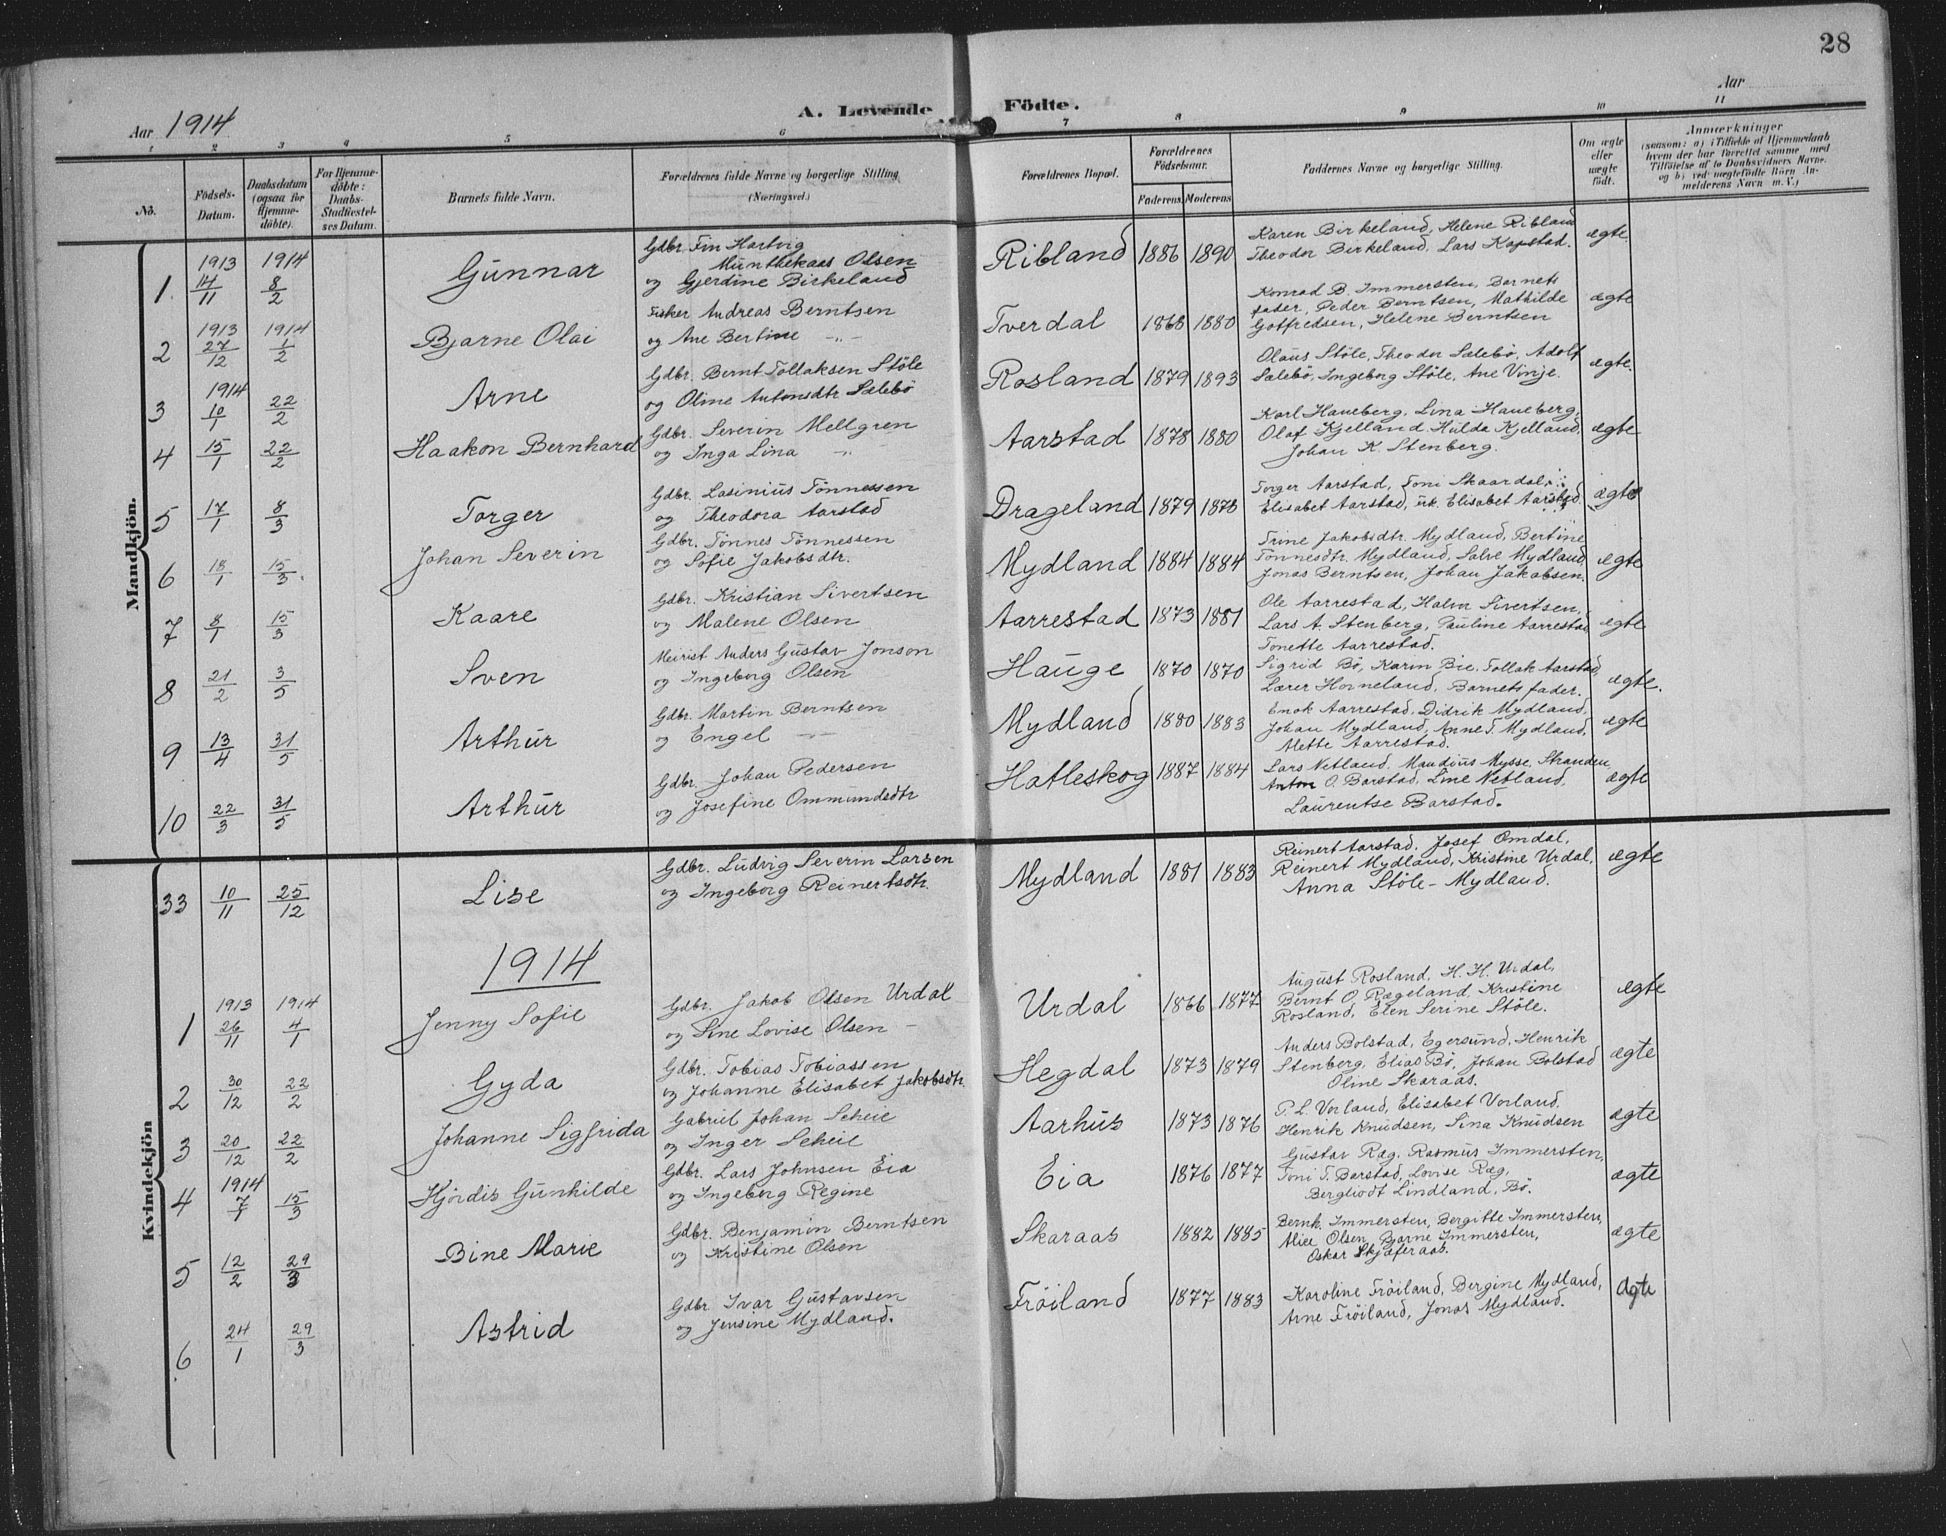 28
Aar 1914
A. Levende Födte.
Aar
1 2 3 4 5 6 7 8 9 10 11
No.
Födsels-Datum.
Daabsdatum (ogsaa for Hjemme-döbte).
For Hjemme-döbte: Daabs-Stadfæstel-ses Datum.
Barnets fulde Navn.
Forældrenes fulde Navne og borgerlige Stilling (Næringsvei.)
Forældrenes Bopæl.
Forældrenes Födselsaar.
Faderens. Moderens.
Faddernes Navne og borgerlige Stilling.
Om ægte eller uægte födt.
Anmærkninger
(saasom: a) i Tilfælde af Hjemmedaab
hvem der har forrettet samme med
Tilföielse af to Daabsvidners Navne.
og b) ved uægtefödte Börn An-
melderens Navn m. V.)
Mandkjön.
1 1913 14/11 1914 8/2 Gunnar Gdbr. Fin Hartvig Munthekaas Olsen og Gjerdine Birkeland Ribland 1886 1890 Karen Birkeland, Helene Ribland Theodor Birkeland, Lars Kapstad. ægte.
2 1913 27/12 1914 1/2 Bjarne Olai Fisker Andreas Berntsen og Ane Bertine -"- Tverdal 1868 1880 Konrad B. Immersten, Barnets fader, Peder Berntsen, Mathilde Gotfredsen, Helene Berntsen ægte
3 1914 10/1 22/2 Arne Gdbr. Bernt Tollaksen Stöle og Oline Antonsdtr Sælebö Rosland 1879 1893 Olaus Stöle, Theodor Sælebö, Adolf Sælebö, Ingeborg Stöle, Ane Vinje. ægte.
4 15/1 22/2 Haakon Bernhard Gdbr. Severin Mellgren og Inga Lina -"- Aarstad 1878 1880 Karl Haneberg, Lina Haneberg, Olaf Kjelland, Hulda Kjelland, Johan K. Stenberg. ægte
5 17/1 8/3 Torger Gdbr. Lasinius Tönnessen og Theodora Aarstad Drageland 1879 1878 Torger Aarstad, Toni Skaardal, Elisabet Aarstad, Elisabet Aarstad. ægte
6 18/1 15/3. Johan Severin Gdbr. Tönnes Tönnessen og Sofie Jakobsdtr. Mydland 1884 1884 Trine Jakobsdtr. Mydland, Bertine Tönnesdtr. Mydland, Salve Mydland, Jonas Berntsen, Johan Jakobsen. ægte
7 8/1 15/3 Kaare Gdbr. Kristian Sivertsen og Malene Olsen Aarrestad 1873 1881 Ole Aarrestad, Halvor Sivertsen, Lars A. Stenberg, Pauline Aarrestad Tonette Aarrestad. ægte
8 21/2 3/5 Sven Meirist Anders Gustav Jonson og Ingeborg Olsen Hauge 1870 1870 Sigrid Bö, Karin Bie, Tollak Aarstad, Lærer Horneland, Barnets fader. ægte.
9 13/4 31/5 Arthur Gdbr. Martin Berntsen og Engel -"- Mydland 1880 1883 Enok Aarrestad, Didrik Mydland, Johan Mydland, Anne T. Mydland, Mette Aarrestad. ægte
10 22/3 31/5 Arthur Gdbr. Johan Pedersen og Josefine Ommundsdtr Hatleskog 1887 1884 Lars Netland, Maudius Mysse, Stranden, Anton O. Barstad, Line Netland, Laurentse Barstad. ægte
Kvindekjön
33 10/11 25/12 Lise Gdbr. Ludvig Severin Larsen og Ingeborg Reinertsdtr. Mydland 1881 1883 Reinert Aarstad, Josef Omdal, Reinert Mydland, Kristine Urdal, Anna Stöle-Mydland. ægte
1914
1 1913 26/11 1914 4/1 Jenny Sofie Gdbr. Jakob Olsen Urdal og Sine Lovise Olsen - Urdal 1866 1877 August Rosland, H. H. Urdal, Bernt O. Rægeland, Kristine Rosland, Elen Serine Stöle. ægte
2 30/12 22/2 Gyda Gdbr. Tobias Tobiassen og Johanne Elisabet Jakobsdtr. Hegdal 1873 1879 Anders Bolstad, Egersund, Henrik Stenberg, Elias Bö, Johan Bolstad Oline Skaraas. ægte
3 20/12 22/2 Johanne Sigfrida Gabriel Johan Scheie og Inger Scheie Aarhus 1873 1876 P. L. Vorland, Elisabet Vorland. Henrik Knudsen, Sina Knudsen ægte
4 1914 7/1 15/3 Hjördis Gunhilde Gdbr. Lars Johnsen Eia og Ingeborg Regine Eia 1876 1877 Gustav Ræg, Rasmus Immersten, Toni T. Barstad, Lovise Ræg, Bergliodt Lindland, Bö. ægte
5 12/2 29/3 Bine Marie Gdbr. Benjamin Berntsen og Kristine Olsen Skaraas 1882 1885 Bernh. Immersten, Bergitte Immersten, Alice Olsen, Bjarne Immersten, Oskar Skjæferaas. ægte
6 24/1 29/3 Astrid Gdbr. Ivar Gustavsen og Jensine Mydland. Fröiland 1877 1883 Karoline Fröiland, Bergine Mydland, Arne Fröiland, Jonas Mydland. Ægte